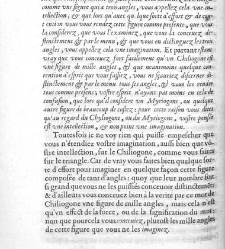 comme vne figure qui a trois angles, vous appellez cela intel-
lection, & que lors qu'auec quelque sorte d'effort & de
vous vous rendez cette figure comme presente, que vous
la considerez, que vous l'examinez, que vous la
par le menu, & que vous en distinguez les trois
angles, vous appellez cela vne imagination. Et partant
vray que vous conceuez fort facilement qu'vn Chiliogone est
vne figure de mille angles, & que neantmoins quelque con-
tention d'esprit que vous fassiez, vous ne sçauriez discerner di-
stinctement & par le menu tous ses angles, & vous les rendre
tous comme presens, vostre esprit n'ayant pas en cela moins de
confusion, que lors qu'il considere vn Myriogone, ou quelque
autre figure de beaucoup de costez; pour cette raison vous dites
qu'au regard du Chiliogone, ou du Myriogone, vostre pensée
est vne intellection, & non point vne imagination.
Toutesfois ie ne voy rien qui puisse empescher que
vous n'étendiez vostre imagination, aussi bien que vo-
stre intellection, sur le Chiliogone, comme vous faites
sur le triangle. Car de vray vous faites bien quelque sor-
te d'effort pour imaginer en quelque façon cette figure
composée de tant d'angles; quoy que leur nombre soit
si grand que vous ne les puissiez conceuoir distinctement:
& d'ailleurs vous conceuez bien à la verité par ce mot de
Chiliogone vne figure de mille angles, mais cela n'est
qu'vn effect de la force, ou de la signification du mot
non que pour cela vous conceuiez plutost les mille angles
de cette figure que vous ne les imaginez.